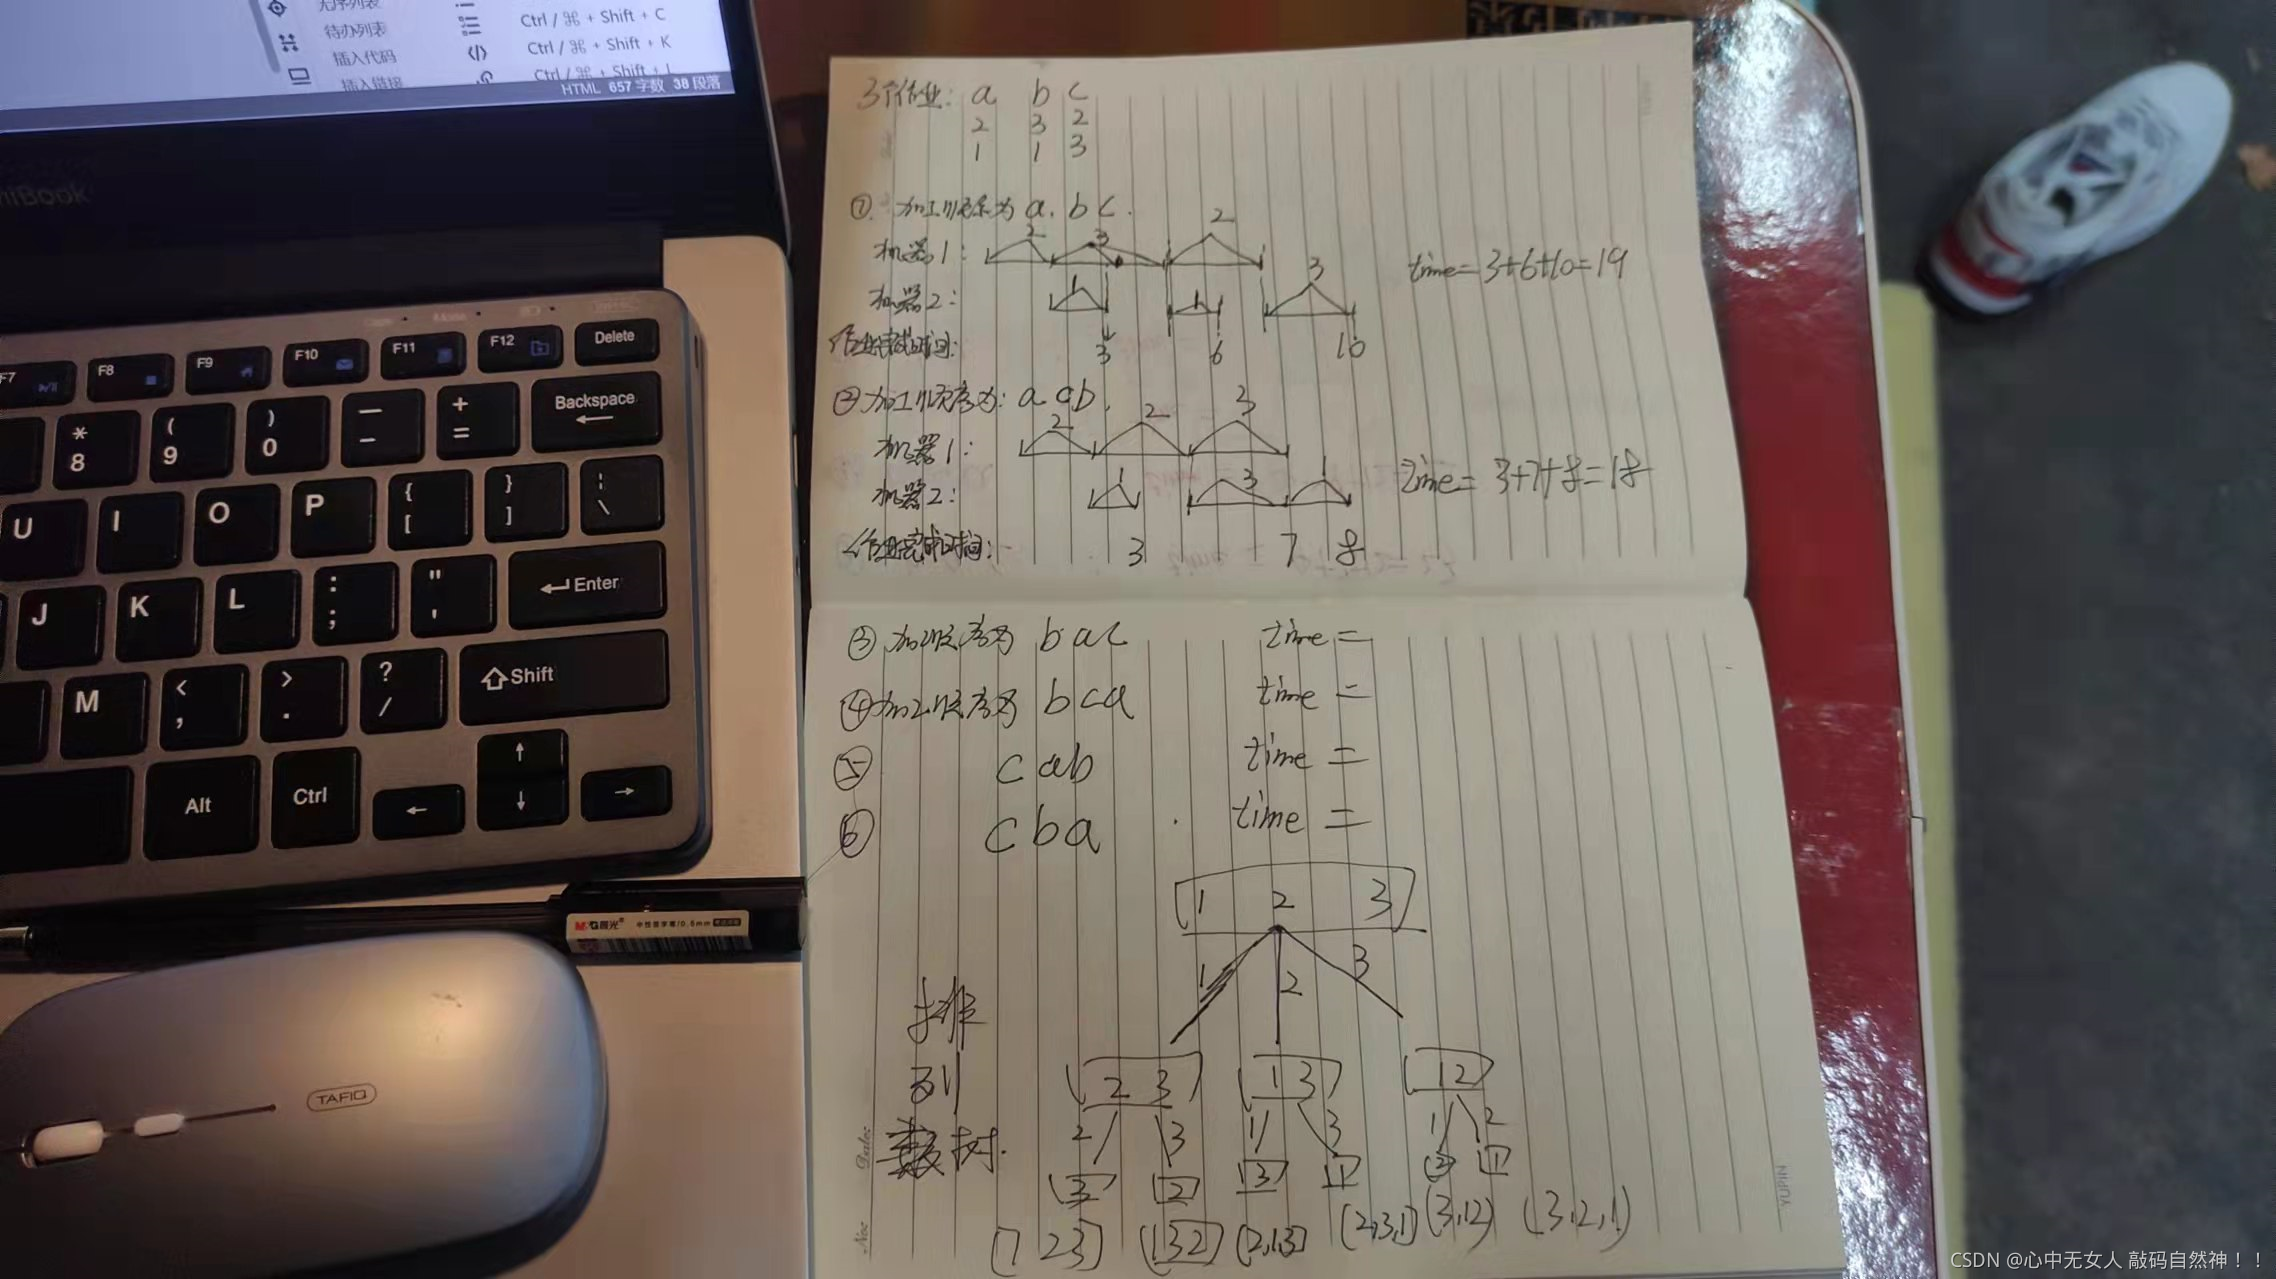 无序列表 Ctrl / ⌘ + Shift + C
待办列表
插入代码 Ctrl / ⌘ + Shift + K
插入链接 Ctrl / ⌘ + Shift + L
HTML 657 字数 38 段落
F7 F8 F9 F10 F11 F12 Delete
* 8 ( 9 ) 0 — - + = Backspace
U I O P { [ } ] | \
J K L : ; " ' Enter
M < , > . ? / Shift
Alt Ctrl
M&G晨光 中性签字笔/0.5mm
TAFIQ
3个作业: a b c
2 3 2
1 1 3
① 加工顺序为 a. b c.
2 3 2
机器1:
time=3+6+10=19
1 1 3
机器2:
作业完成时间: 3 6 10
② 加工顺序为: a c b.
2 2 3
机器1:
1 3 1
机器2:
time= 3+7+8=18
作业完成时间: 3 7 8
③ 加工顺序为 b a c time =
④ 加工顺序为 b c a time =
⑤ c a b time =
⑥ c b a time =
1 2 3
1 2 3
排
列
树.
2 3 1 3 1 2
2 3 1 3 1 2
3 2 3 1 2 1
(1 2 3) (1 3 2) (2,1,3) (2,3,1) (3,1 2) (3,2,1)
Date:
No:
YUPIN
CSDN @心中无女人 敲码自然神！！